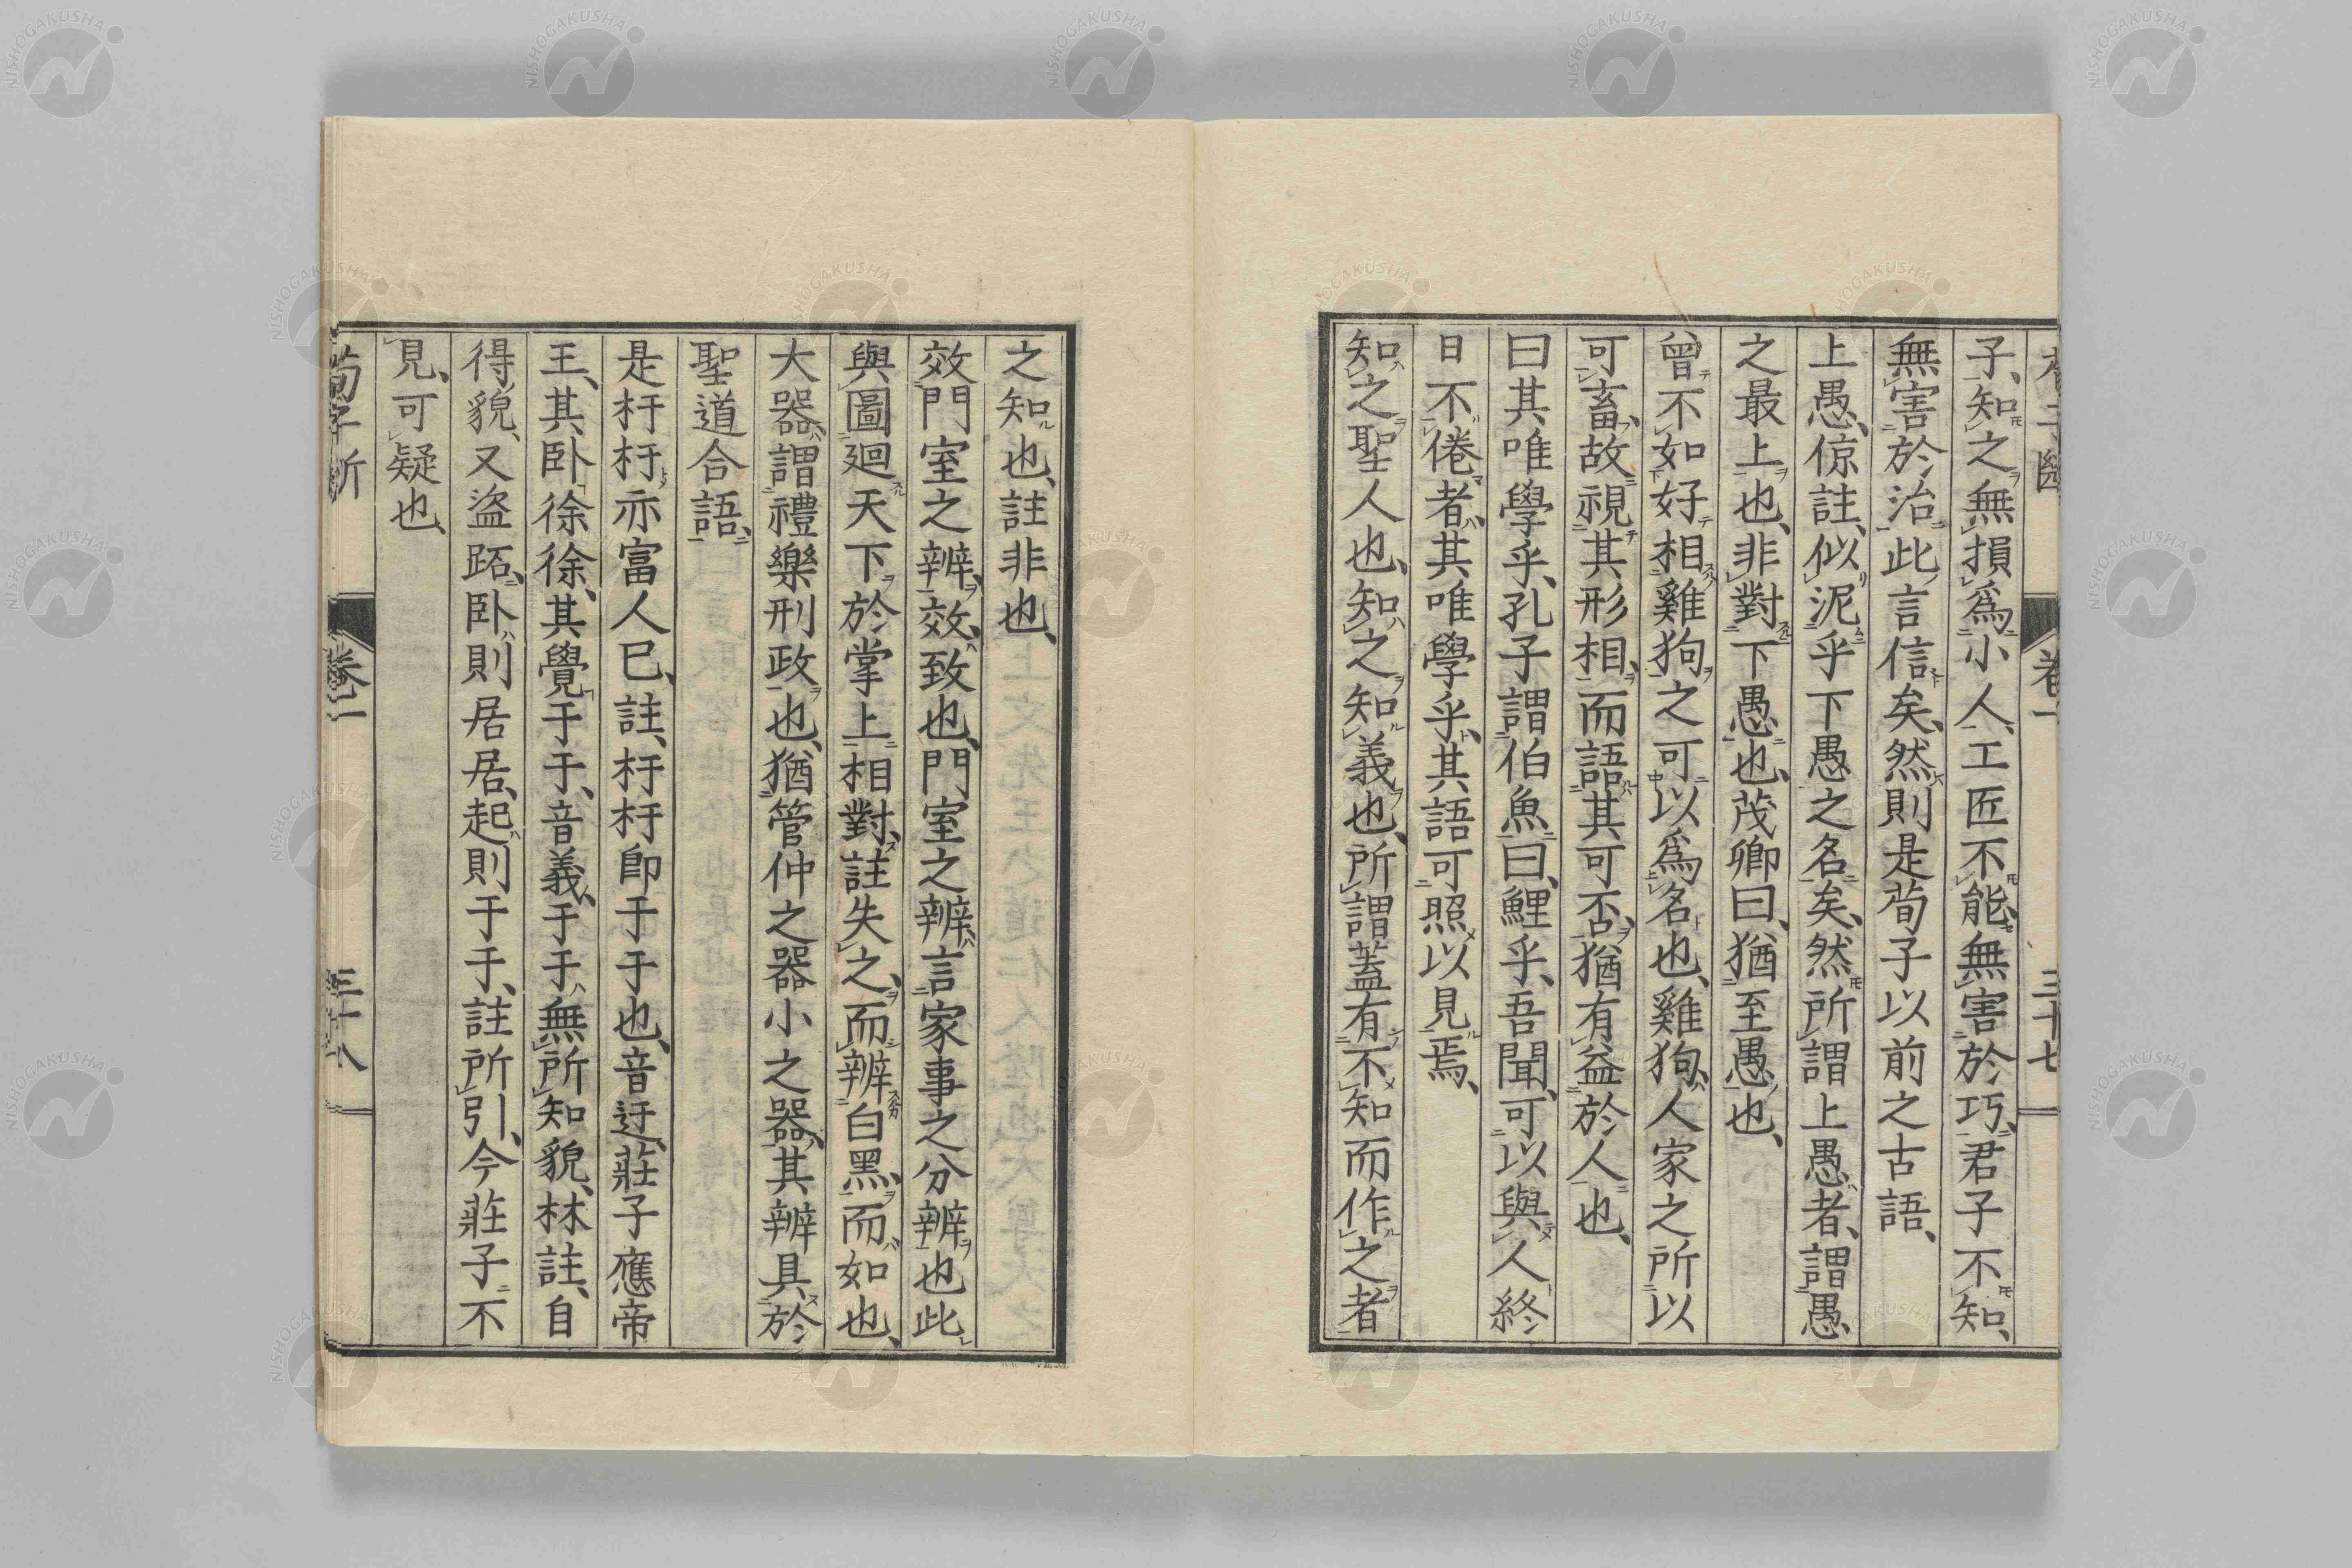 子、知之無損為小人、工匠不能、無害於巧、君子不知、
無害於治、此言信矣、然則是荀子以前之古語、
上愚、倞註、似泥乎下愚之名矣、然所謂上愚者、謂愚
之最上也、非對下愚也、茂卿曰、猶至愚也、
曾不如好相雞狗之可以為名也、雞狗、人家之所以
可畜、故視其形相、而語其可否、猶有益於人也、
曰其唯學乎、孔子謂伯魚曰、鯉乎、吾聞、可以與人終
日不倦者、其唯學乎、其語可照以見焉、
知之聖人也、知之知義也、所謂蓋有不知而作之者
之知也、註非也、
效門室之辨、效、致也、門室之辨、言家事之分辨也此
與圖廻天下於掌上相對、註失之、而辨白黑、而如也、
大器、謂禮樂刑政也、猶管仲之器小之器、其辨具於
聖道合語、
是杅杅亦富人已、註、杅杅即于于也、音迂、莊子應帝
王、其臥徐徐、其覺于于、音義、于于、無所知貌、林註、自
得貌、又盜跖、臥則居居、起則于于、註所引、今莊子不
見、可疑也、
卷一
三十八